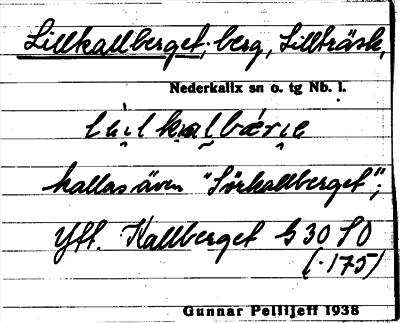 Lillkallberget; berg, Lillträsk,
Nederkalix sn o. tg Nb. l.
kallas även "Sörkallberget";
Yft. Kallberget b 30 SO
(:175)
Gunnar Pellijeff 1938